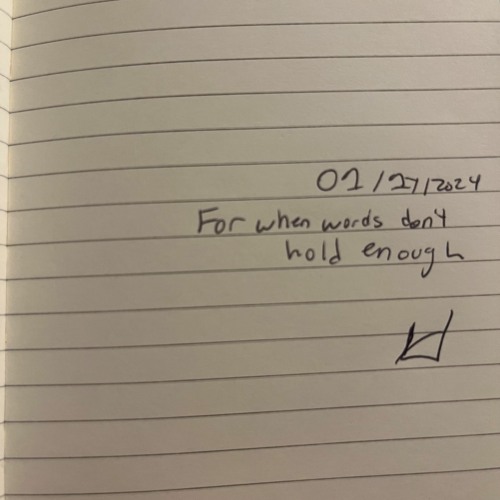 01/27/2024
For when words don't
hold enough